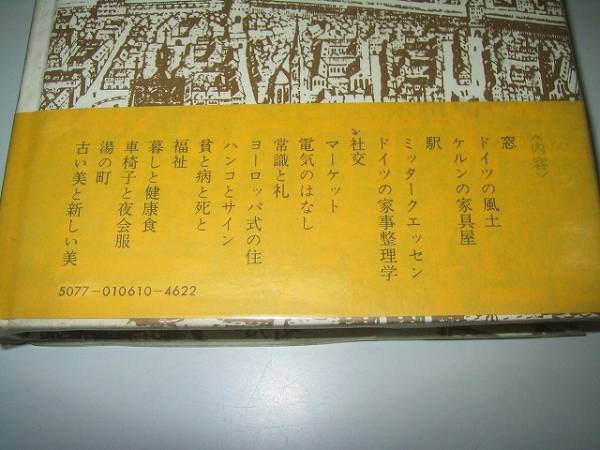 〈内容〉
窓
ドイツの風土
ケルンの家具屋
駅
ミッタークエッセン
ドイツの家事整理学
社交
マーケット
電気のはなし
常識と礼
ヨーロッパ式の住
ハンコとサイン
貧と病と死と
福祉
暮しと健康食
車椅子と夜会服
湯の町
古い美と新しい美
5077-010610-4622